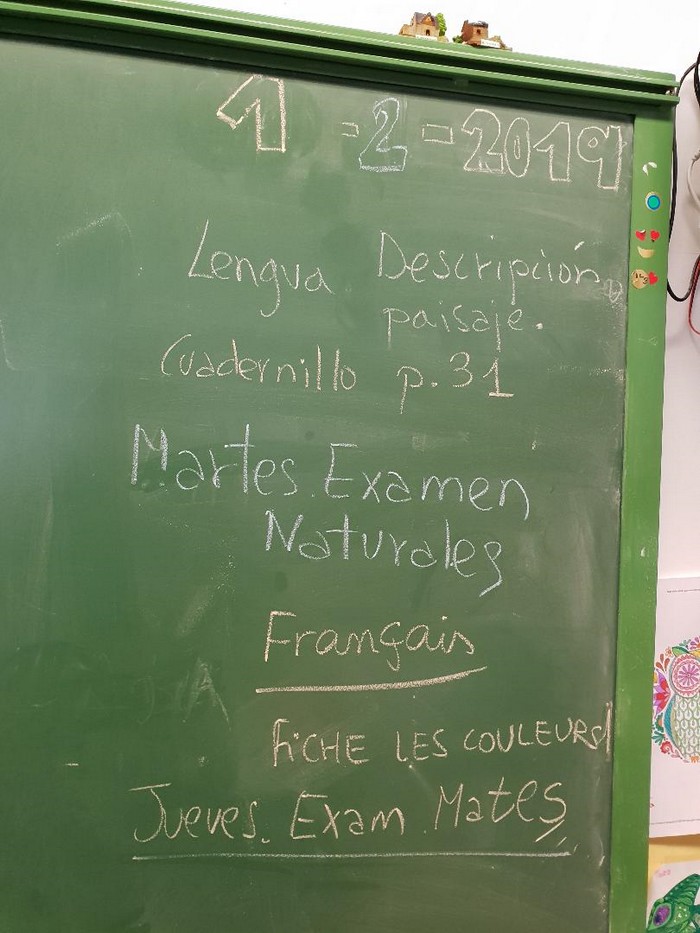 1 - 2 - 2019
Lengua Descripción
paisaje.
Cuadernillo p.31
Martes. Examen
Naturales
Français
FICHE LES COULEURS
Jueves. Exam. Mates